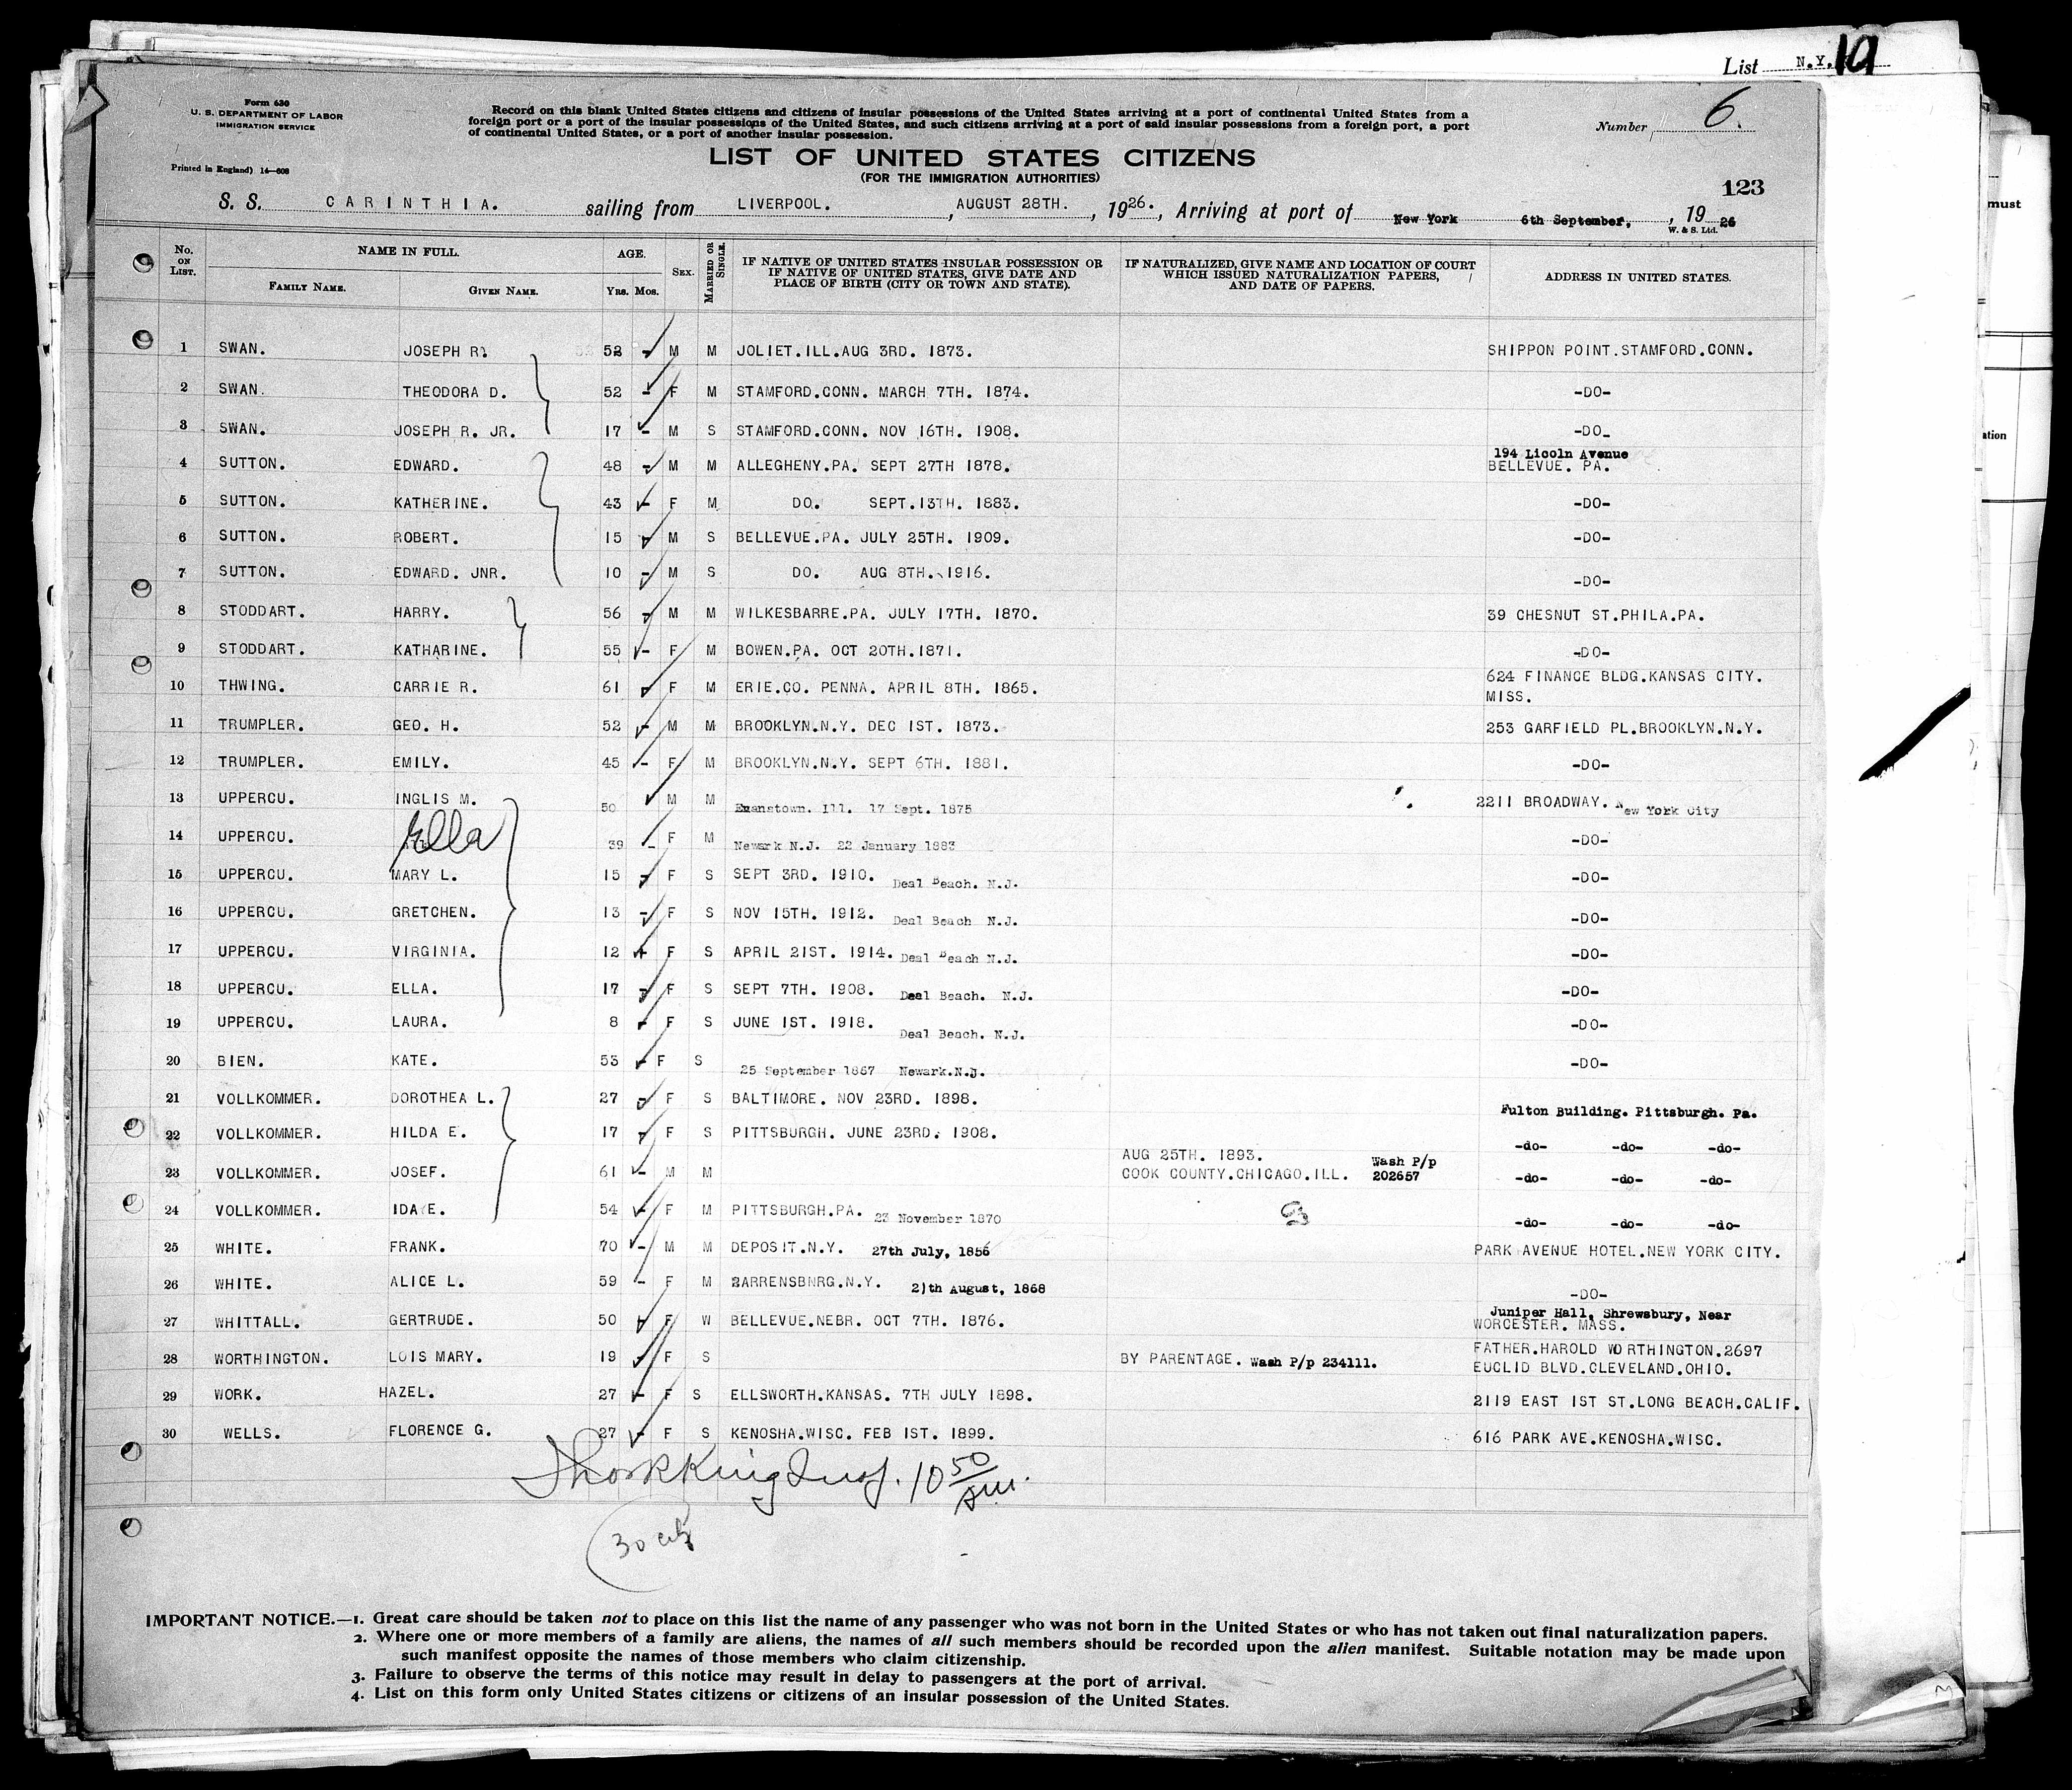 List N.Y. 19
Form 630
U. S. DEPARTMENT OF LABOR
IMMIGRATION SERVICE
Printed in England) 14—608
Record on this blank United States citizens and citizens of insular possessions of the United States arriving at a port of continental United States from a
foreign port or a port of the insular possessions of the United States, and such citizens arriving at a port of said insular possessions from a foreign port, a port
of continental United States, or a port of another insular possession.
Number 6.
LIST OF UNITED STATES CITIZENS
(FOR THE IMMIGRATION AUTHORITIES)
123
S. S. CARINTHIA. sailing from LIVERPOOL. , AUGUST 28TH. , 1926. , Arriving at port of New York 6th September, , 19 26
W. & S. Ltd.
must
ation
No. ON LIST. NAME IN FULL. FAMILY NAME. GIVEN NAME. AGE. YRS. MOS. SEX. MARRIED OR SINGLE. IF NATIVE OF UNITED STATES INSULAR POSSESSION OR IF NATIVE OF UNITED STATES, GIVE DATE AND PLACE OF BIRTH (CITY OR TOWN AND STATE). IF NATURALIZED, GIVE NAME AND LOCATION OF COURT WHICH ISSUED NATURALIZATION PAPERS, AND DATE OF PAPERS. ADDRESS IN UNITED STATES.
1 SWAN. JOSEPH R. 52 - M M JOLIET.ILL.AUG 3RD. 1873. SHIPPON POINT.STAMFORD.CONN.
2 SWAN. THEODORA D. 52 - F M STAMFORD.CONN. MARCH 7TH. 1874. -DO-
3 SWAN. JOSEPH R. JR. 17 - M S STAMFORD.CONN. NOV 16TH. 1908. -DO-
4 SUTTON. EDWARD. 48 - M M ALLEGHENY.PA. SEPT 27TH 1878. 194 Licoln Avenue BELLEVUE. PA.
5 SUTTON. KATHERINE. 43 - F M DO. SEPT.13TH. 1883. -DO-
6 SUTTON. ROBERT. 15 - M S BELLEVUE.PA. JULY 25TH. 1909. -DO-
7 SUTTON. EDWARD. JNR. 10 - M S DO. AUG 8TH. 1916. -DO-
8 STODDART. HARRY. 56 - M M WILKESBARRE.PA. JULY 17TH. 1870. 39 CHESNUT ST.PHILA.PA.
9 STODDART. KATHARINE. 55 - F M BOWEN.PA. OCT 20TH.1871. -DO-
10 THWING. CARRIE R. 61 - F M ERIE.CO. PENNA. APRIL 8TH. 1865. 624 FINANCE BLDG.KANSAS CITY. MISS.
11 TRUMPLER. GEO. H. 52 - M M BROOKLYN.N.Y. DEC 1ST. 1873. 253 GARFIELD PL.BROOKLYN.N.Y.
12 TRUMPLER. EMILY. 45 - F M BROOKLYN.N.Y. SEPT 6TH. 1881. -DO-
13 UPPERCU. INGLIS M. 50 M M Evanstown. Ill. 17 Sept. 1875 2211 BROADWAY. New York City
14 UPPERCU. Ella 39 - F M Newark N.J. 22 January 1883 -DO-
15 UPPERCU. MARY L. 15 - F S SEPT 3RD. 1910. Deal Beach. N.J. -DO-
16 UPPERCU. GRETCHEN. 13 - F S NOV 15TH. 1912. Deal Beach N.J. -DO-
17 UPPERCU. VIRGINIA. 12 - F S APRIL 21ST. 1914. Deal Beach N.J. -DO-
18 UPPERCU. ELLA. 17 - F S SEPT 7TH. 1908. Deal Beach. N.J. -DO-
19 UPPERCU. LAURA. 8 - F S JUNE 1ST. 1918. Deal Beach. N.J. -DO-
20 BIEN. KATE. 53 - F S 25 September 1867 Newark.N.J. -DO-
21 VOLLKOMMER. DOROTHEA L. 27 - F S BALTIMORE. NOV 23RD. 1898. Fulton Building. Pittsburgh. Pa.
22 VOLLKOMMER. HILDA E. 17 - F S PITTSBURGH. JUNE 23RD. 1908. -do- -do- -do-
23 VOLLKOMMER. JOSEF. 61 - M M AUG 25TH. 1893. COOK COUNTY.CHICAGO.ILL. Wash P/p 202657 -do- -do- -do-
24 VOLLKOMMER. IDA E. 54 - F M PITTSBURGH.PA. 23 November 1870 -do- -do- -do-
25 WHITE. FRANK. 70 - M M DEPOSIT.N.Y. 27th July, 1856 PARK AVENUE HOTEL.NEW YORK CITY.
26 WHITE. ALICE L. 59 - F M 2ARRENSBNRG.N.Y. 2)th August, 1868 -DO-
27 WHITTALL. GERTRUDE. 50 - F W BELLEVUE.NEBR. OCT 7TH. 1876. Juniper Hall, Shrewsbury, Near WORCESTER. MASS.
28 WORTHINGTON. LOIS MARY. 19 - F S BY PARENTAGE. Wash P/p 234111. FATHER.HAROLD WORTHINGTON.2697 EUCLID BLVD.CLEVELAND.OHIO.
29 WORK. HAZEL. 27 - F S ELLSWORTH.KANSAS. 7TH JULY 1898. 2119 EAST 1ST ST.LONG BEACH.CALIF.
30 WELLS. FLORENCE G. 27 - F S KENOSHA.WISC. FEB 1ST. 1899. 616 PARK AVE.KENOSHA.WISC.
10 50 AM.
30
IMPORTANT NOTICE.—1. Great care should be taken not to place on this list the name of any passenger who was not born in the United States or who has not taken out final naturalization papers.
2. Where one or more members of a family are aliens, the names of all such members should be recorded upon the alien manifest. Suitable notation may be made upon
such manifest opposite the names of those members who claim citizenship.
3. Failure to observe the terms of this notice may result in delay to passengers at the port of arrival.
4. List on this form only United States citizens or citizens of an insular possession of the United States.